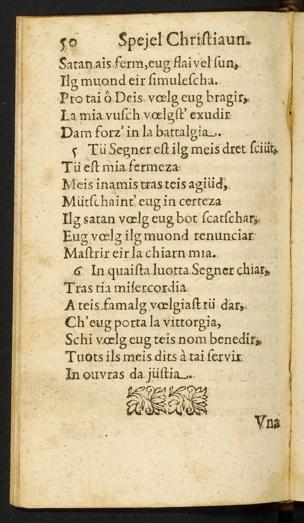 50 Spejel Christiaun.
Satan ais ferm, eug flaivel sun,
Ilg muond eir simulescha.
Pro tai ô Deis vœlg eug bragir,
La mia vusch vœlgst' exudir
Dam forz' in la battalgia.
5 Tü Segner est ilg meis dret sciüt,
Tü est mia fermeza
Meis inamis tras teis agiüd,
Mütschaint' eug in certeza
Ilg satan vœlg eug bot scatschar,
Eug vœlg ilg muond renunciar
Mastrir eir la chiarn mia.
6 In quaista luotta Segner chiar,
Tras tia misericordia
A teis famalg vœlgiast tü dar,
Ch' eug porta la vittorgia,
Schi vœlg eug teis nom benedir,
Tuots ils meis dits à tai servir
In ouvras da jüstia.
Vna